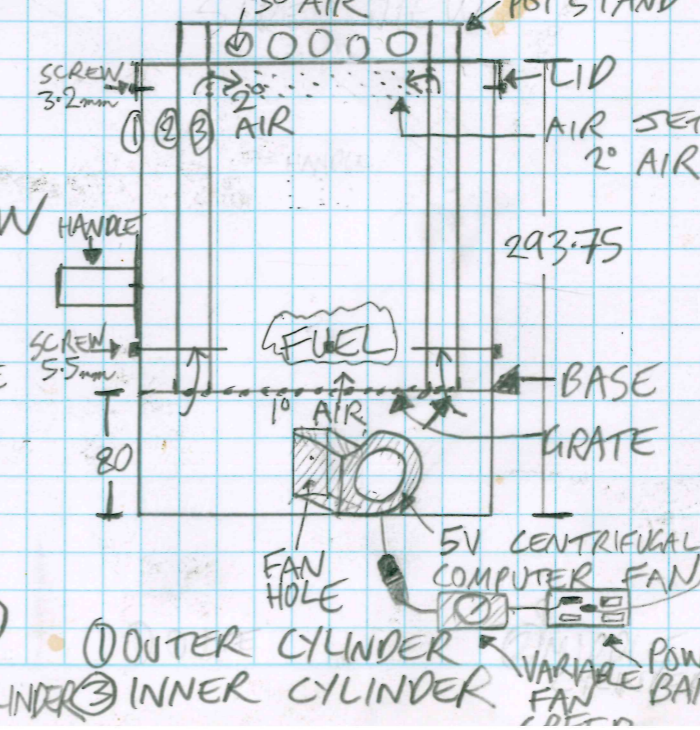 3° AIR
POT STAND
SCREW
3.2mm
LID
① ② ③
2°
AIR
AIR JET
2° AIR
W
HANDLE
293.75
FUEL
SCREW
5.5mm
BASE
1° AIR
GRATE
80
5V CENTRIFUGAL
COMPUTER FAN
FAN
HOLE
① OUTER CYLINDER
LINDER ③ INNER CYLINDER
VARIABLE
FAN
SPEED
POW
BAN